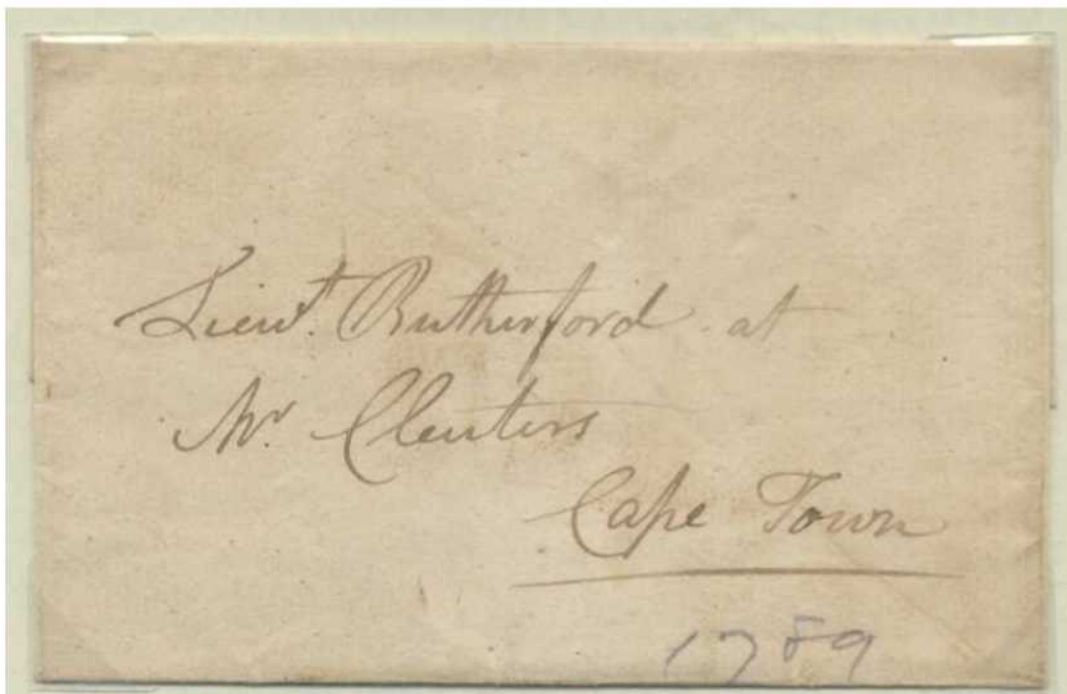 Lieut. Rutherford at
Mr. Cleuters
Cape Town
1789